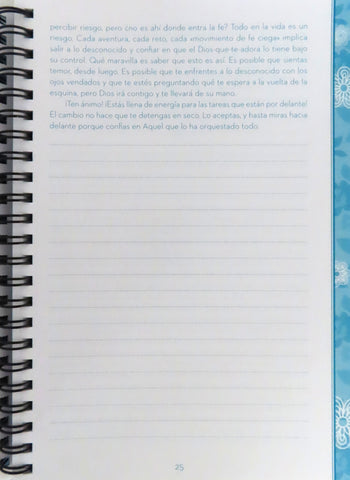 percibir riesgo, pero ¿no es ahí donde entra la fe? Todo en la vida es un
riesgo. Cada aventura, cada reto, cada «movimiento de fe ciega» implica
salir a lo desconocido y confiar en que el Dios que te adora lo tiene bajo
su control. Qué maravilla es saber que esto es así. Es posible que sientas
temor, desde luego. Es posible que te enfrentes a lo desconocido con los
ojos vendados y que te estés preguntando qué te espera a la vuelta de la
esquina, pero Dios irá contigo y te llevará de su mano.
¡Ten ánimo! ¡Estás llena de energía para las tareas que están por delante!
El cambio no hace que te detengas en seco. Lo aceptas, y hasta miras hacia
delante porque confías en Aquel que lo ha orquestado todo.
25